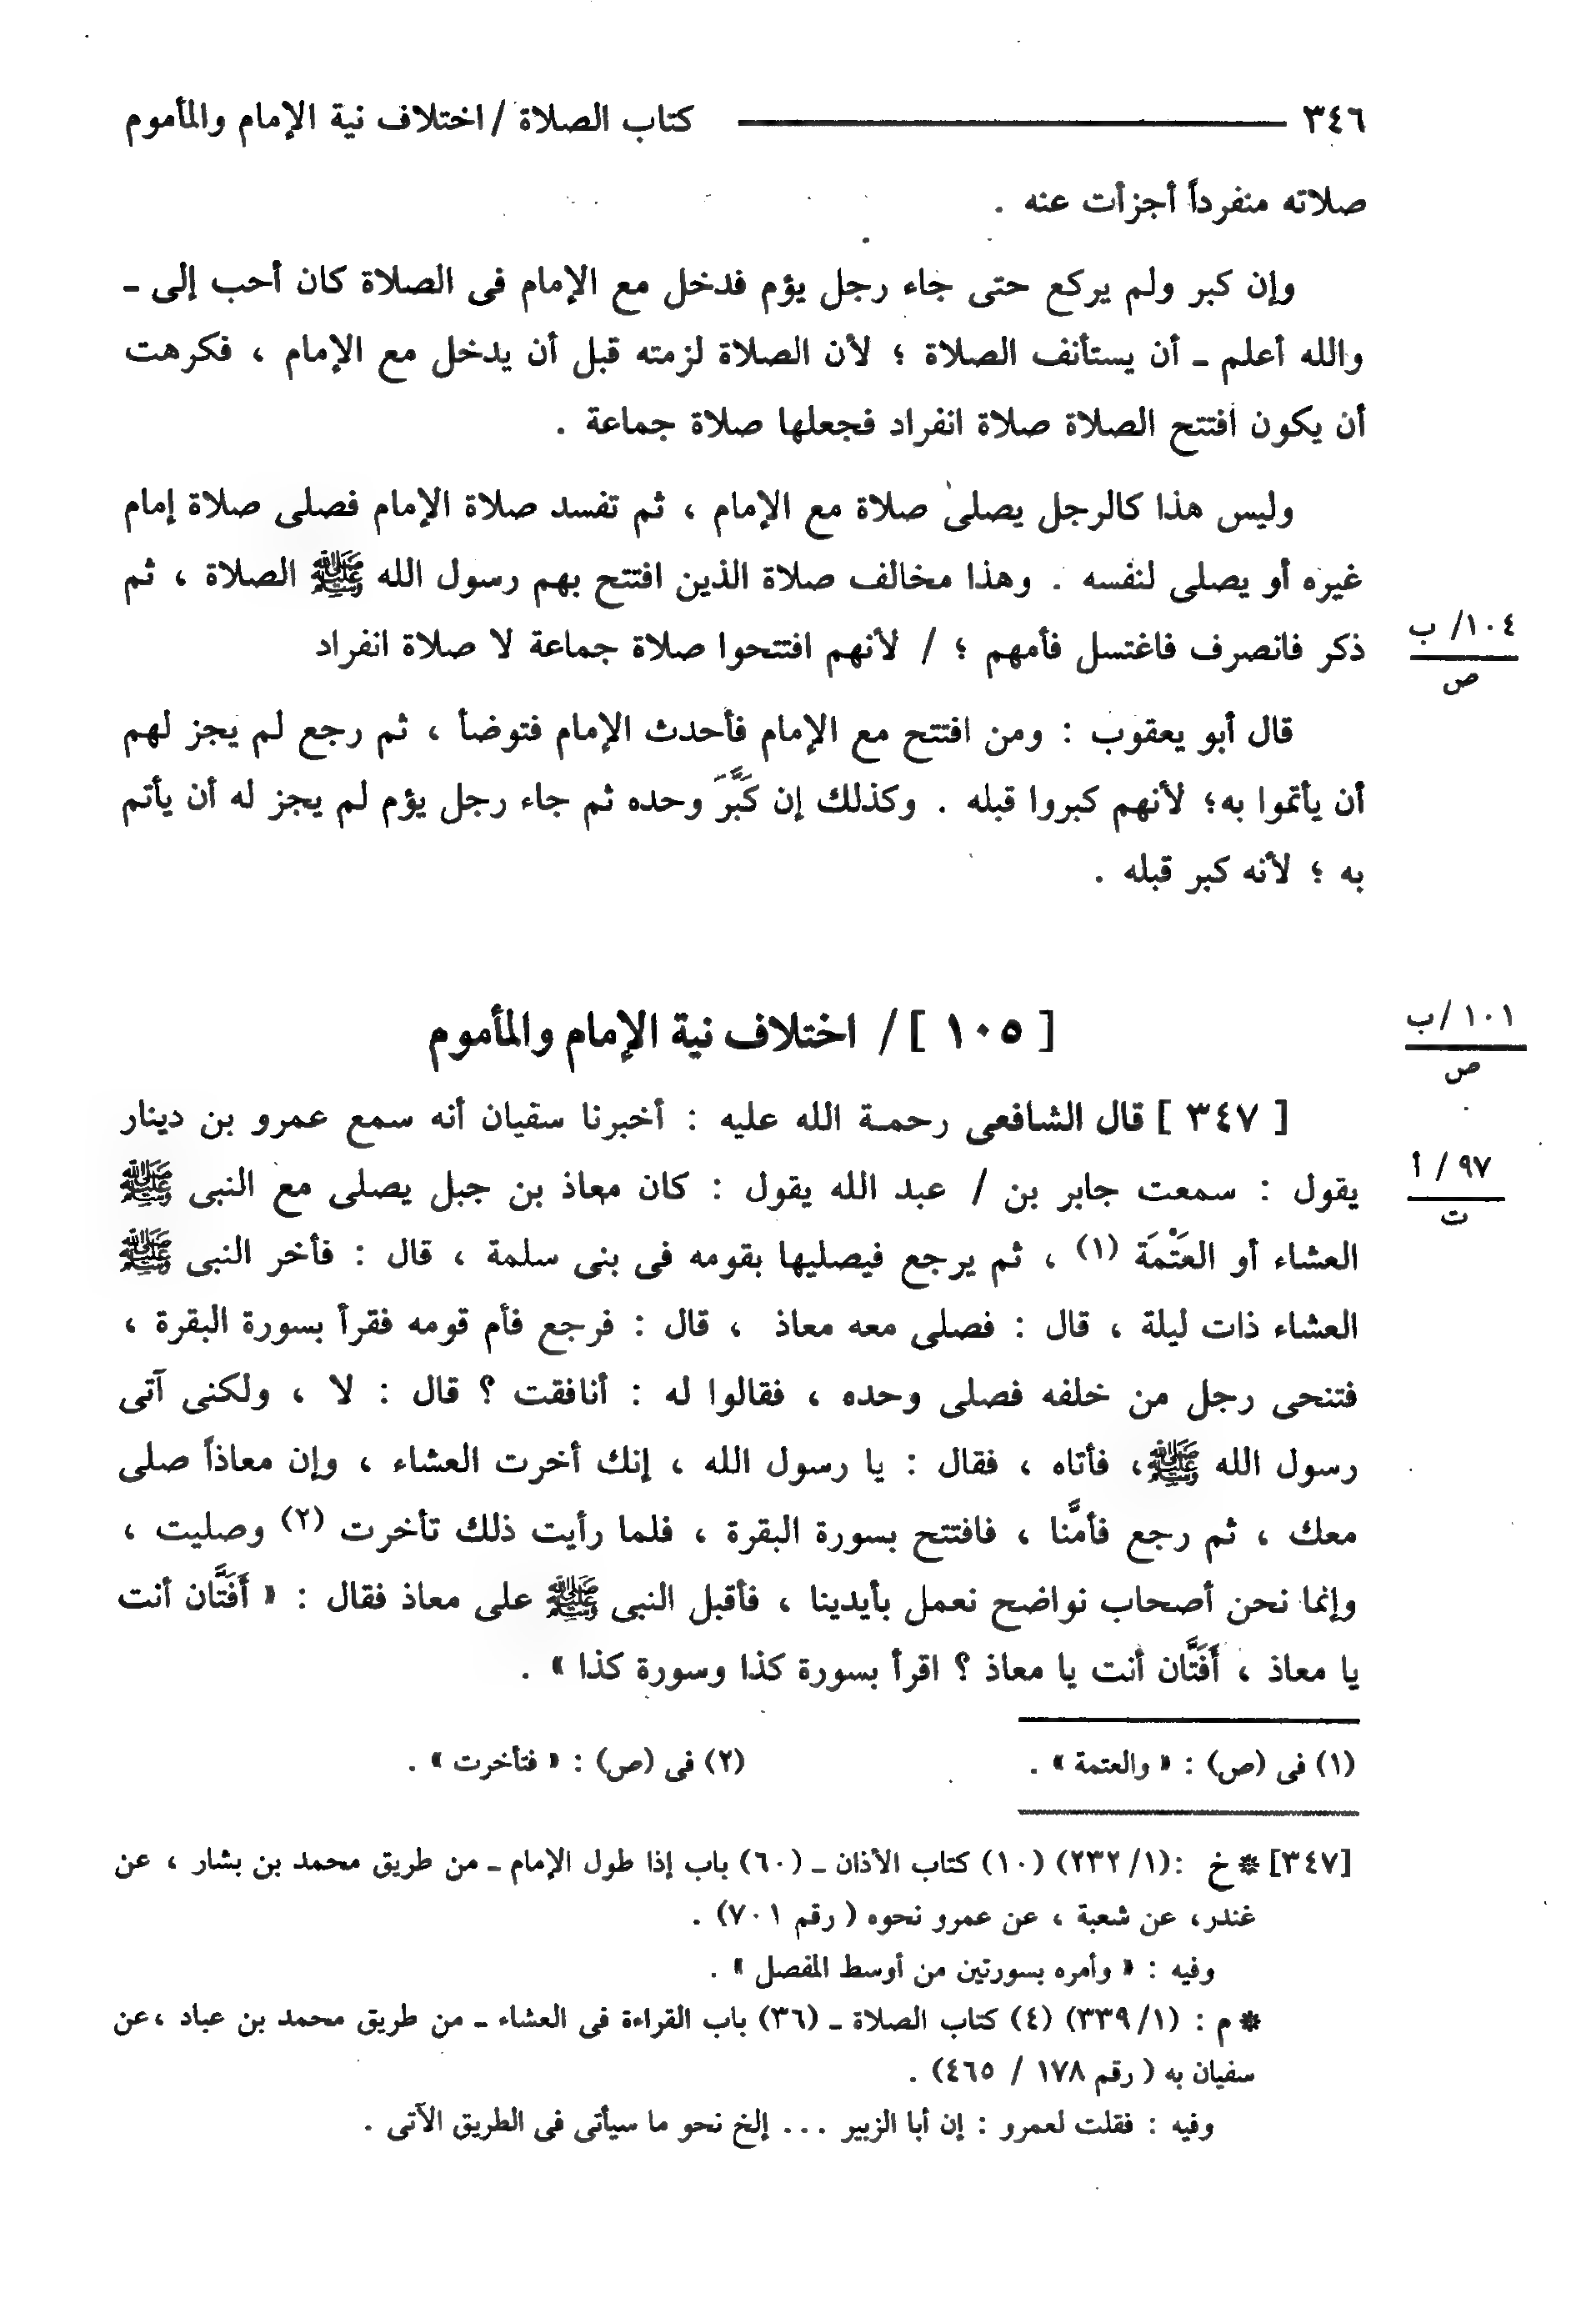 ٣٤٦ كتاب الصلاة / اختلاف نية الإمام والمأموم
صلاته منفرداً أجزأت عنه .
وإن كبر ولم يركع حتى جاء رجل يؤم فدخل مع الإمام فى الصلاة كان أحب إلى ـ
والله أعلم ـ أن يستأنف الصلاة ؛ لأن الصلاة لزمته قبل أن يدخل مع الإمام ، فكرهت
أن يكون افتتح الصلاة صلاة انفراد فجعلها صلاة جماعة .
وليس هذا كالرجل يصلى صلاة مع الإمام ، ثم تفسد صلاة الإمام فصلى صلاة إمام
غيره أو يصلى لنفسه . وهذا مخالف صلاة الذين افتتح بهم رسول الله ﷺ الصلاة ، ثم
ذكر فانصرف فاغتسل فأمهم ؛ / لأنهم افتتحوا صلاة جماعة لا صلاة انفراد
١٠٤/ ب
ص
قال أبو يعقوب : ومن افتتح مع الإمام فأحدث الإمام فتوضأ ، ثم رجع لم يجز لهم
أن يأتموا به؛ لأنهم كبروا قبله . وكذلك إن كَبَّرَ وحده ثم جاء رجل يؤم لم يجز له أن يأتم
به ؛ لأنه كبر قبله .
[ ١٠٥ ] / اختلاف نية الإمام والمأموم
١٠١ /ب
ص
[ ٣٤٧ ] قال الشافعى رحمة الله عليه : أخبرنا سفيان أنه سمع عمرو بن دينار
يقول : سمعت جابر بن / عبد الله يقول : كان معاذ بن جبل يصلى مع النبى ﷺ
٩٧ / أ
ت
العشاء أو العَتْمَة (١) ، ثم يرجع فيصليها بقومه فى بنى سلمة ، قال : فأخر النبى ﷺ
العشاء ذات ليلة ، قال : فصلى معه معاذ ، قال : فرجع فأم قومه فقرأ بسورة البقرة ،
فتنحى رجل من خلفه فصلى وحده ، فقالوا له : أنافقت ؟ قال : لا ، ولكنى آتى
رسول الله ﷺ، فأتاه ، فقال : يا رسول الله ، إنك أخرت العشاء ، وإن معاذاً صلى
معك ، ثم رجع فأمَّنا ، فافتتح بسورة البقرة ، فلما رأيت ذلك تأخرت (٢) وصليت ،
وإنما نحن أصحاب نواضح نعمل بأيدينا ، فأقبل النبى ﷺ على معاذ فقال : « أَفَتَّان أنت
يا معاذ ، أَفَتَّان أنت يا معاذ ؟ اقرأ بسورة كذا وسورة كذا » .
(١) فى (ص) : « والعتمة » . (٢) فى (ص) : « فتأخرت » .
[٣٤٧] * خ :(١/ ٢٣٢) (١٠) كتاب الأذان ـ (٦٠) باب إذا طول الإمام ـ من طريق محمد بن بشار ، عن
غندر، عن شعبة ، عن عمرو نحوه ( رقم ٧٠١) .
وفيه : « وأمره بسورتين من أوسط المفصل » .
* م : (١/ ٣٣٩) (٤) كتاب الصلاة ـ (٣٦) باب القراءة فى العشاء ـ من طريق محمد بن عباد ،عن
سفيان به ( رقم ١٧٨ / ٤٦٥) .
وفيه : فقلت لعمرو : إن أبا الزبير ... إلخ نحو ما سيأتى فى الطريق الآتى .